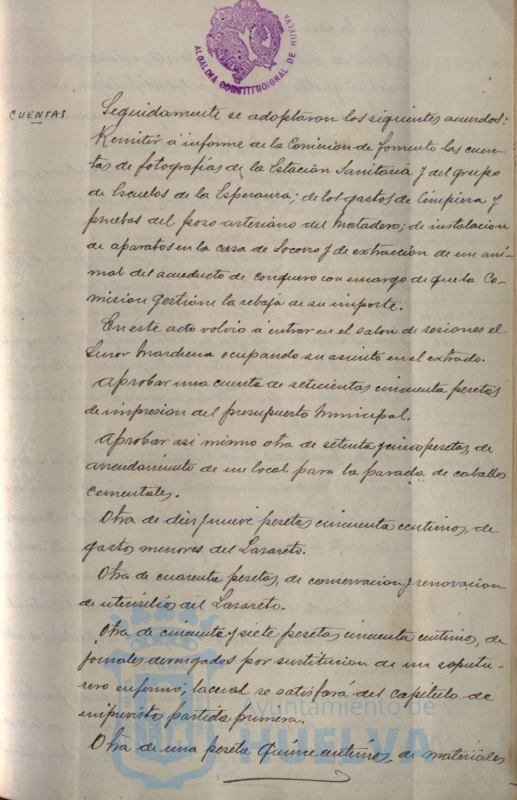 ALCALDIA CONSTITUCIONAL DE HUELVA
CUENTAS
Seguidamente se adoptaron los siguientes acuerdos:
Remitir á informe de la Comision de Fomento las cuen-
tas de fotografias de la Estacion Sanitaria y del grupo
de Escuelas de la Esperanza; de los gastos de limpieza y
pruebas del pozo arteriano del Matadero; de instalacion
de aparatos en la casa de Socorro y de extraccion de un aní-
mal del acueducto de conquero con encargo de que la Co-
mision gestione la rebaja de su importe.
En este acto volvió á entrar en el salon de sesiones el
Señor Mardena ocupando su asiento en el estrado.
Aprobar una cuenta de setecientas cincuenta pesetas
de impresion del presupuesto Municipal.
Aprobar asi mismo otra de setenta y cinco pesetas, de
arrendamiento de un local para la parada de caballos
cementales.
Otra de diez y nueve pesetas cincuenta centimos, de
gastos menores del Lazareto.
Otra de cuarenta pesetas, de conservacion y renovacion
de utensilios del Lazareto.
Otra de cincuenta y siete pesetas cincuenta centimos, de
jornales devengados por sustitucion de un sepultu-
rero enfermo, la cual se satisfará del capitulo de
imprevistos partida primera.
Otra de una peseta quince centimos, de materiales
Ayuntamiento de
HUELVA